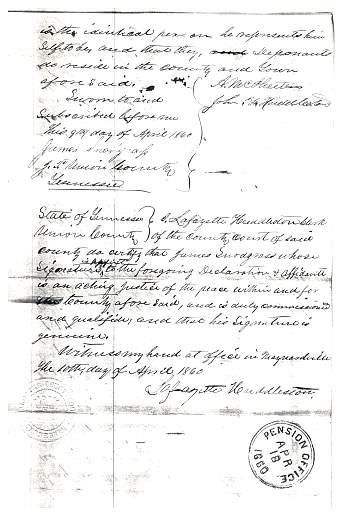 is the identical person he represents him
self to be and that they, Deponants
do reside in the county and Town
afore said.
A. McPheters
John Huddleston
Sworn to and
Subscribed before me
this 9th day of April 1860
James Snodgrass
J. P. Union County
Tennessee
State of Tennessee
Union County
I Lafayette Huddleston Clerk
of the County Court of said
county do certify that James Snodgrass whose
Signature is to the foregoing Declaration & affidavit
is an acting Justice of the peace within and for
the County afore said, and is duly commissioned
and qualified, and that his Signature is
genuine.
Witness my hand at office in Maynardville
the 10th day of April 1860
Lafayette Huddleston
PENSION OFFICE
APR
18
1860